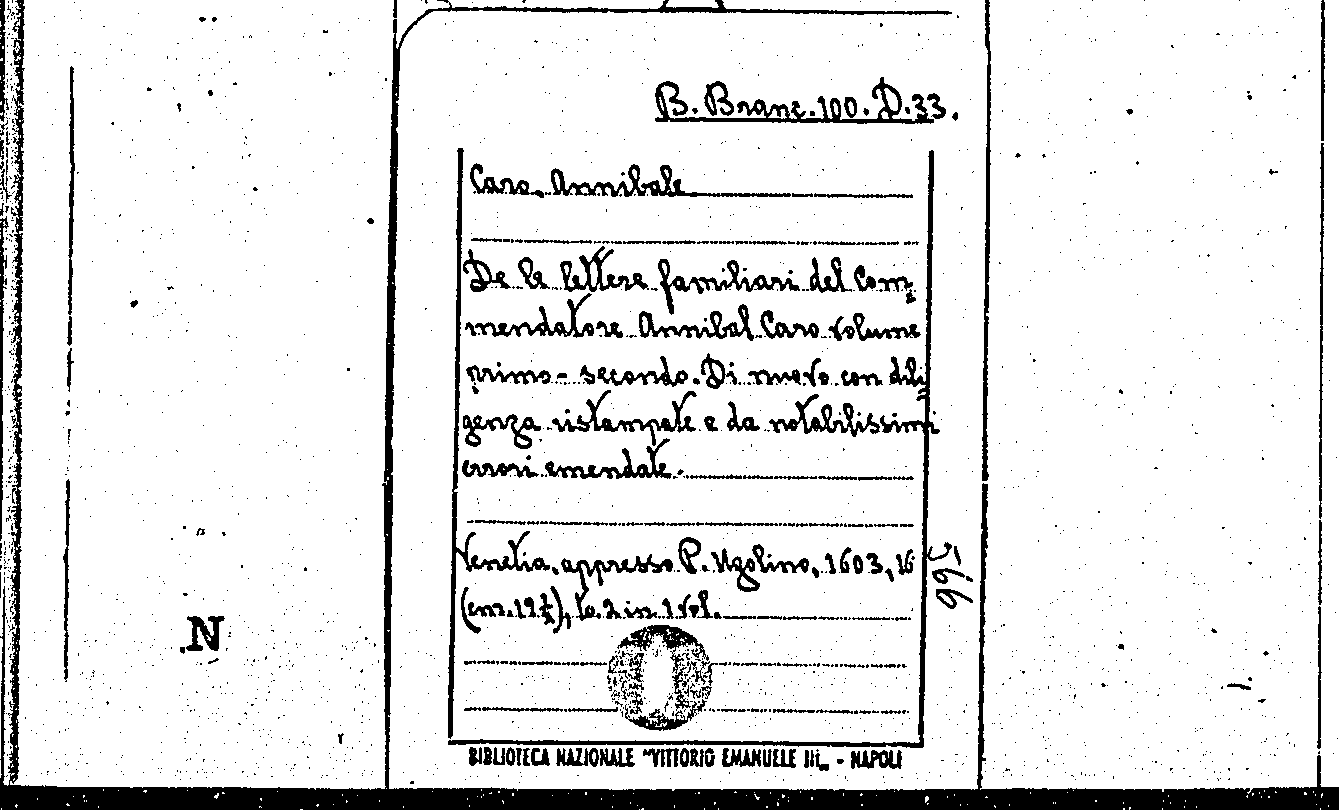 B. Branc. 100. D. 33.
Caro, Annibale
De le lettere familiari del Com=
mendatore Annibal Caro volume
primo - secondo. Di nuovo con dili=
genza ristampate e da notabilissimi
errori emendate.
Venetia, appresso P. Ugolino, 1603, 16
(cm. 19½), to. 2 in 1 vol.
566
N
BIBLIOTECA NAZIONALE "VITTORIO EMANUELE III„ - NAPOLI